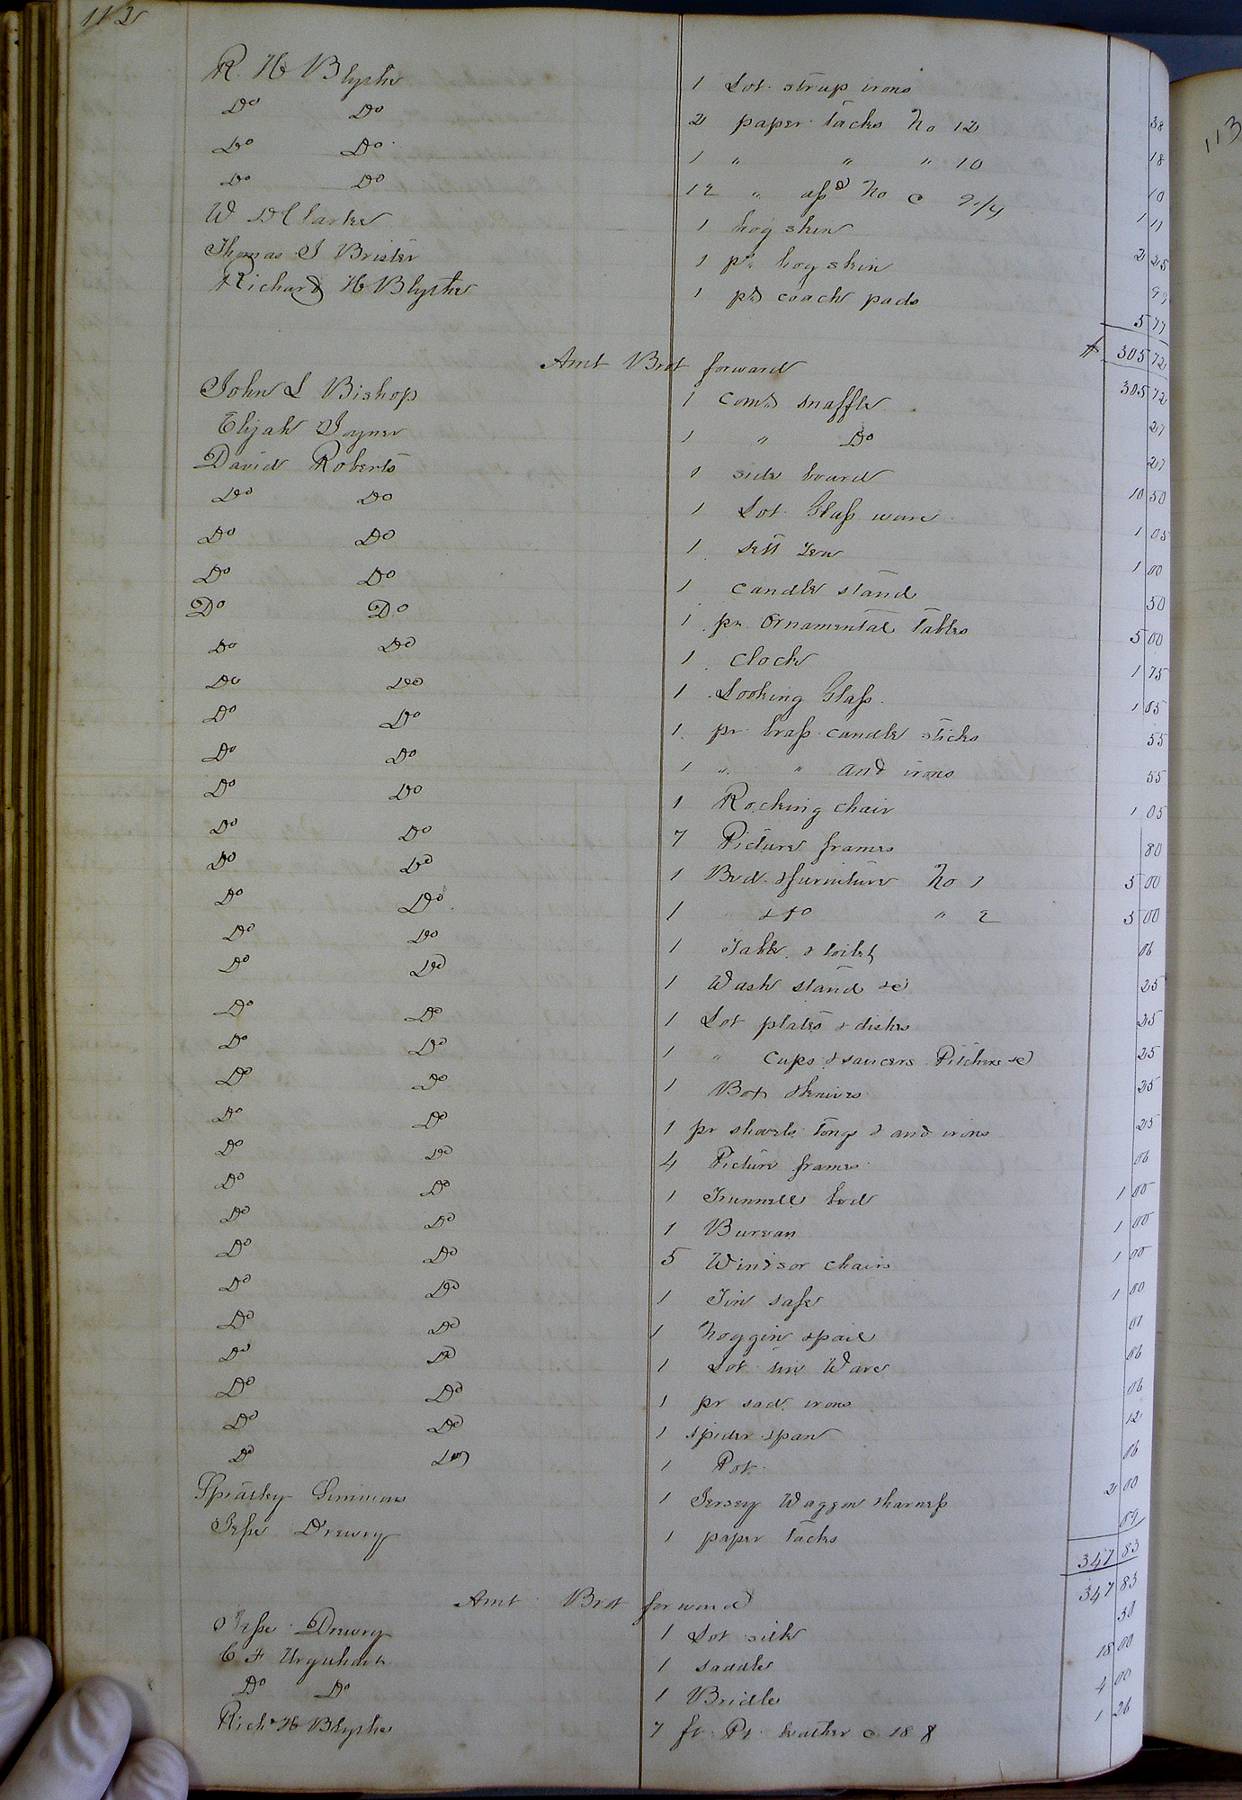 112
R. H Blythe 1 Lot strup irons 38
Do Do 2 paper tacks No 12 18
Do Do 1 " " " 10 10
Do Do 12 " assd No @ 9 1/4 1 11
W D Clarke 1 hog skin
Thomas J Brister 1 pr hog skin 2 25
Richard H Blythe 1 pr coach pads 99
5 77
$ 305 72
Amt Brot forward 305 72
John L Bishop 1 comn snaffle 27
Elijah Joyner 1 " Do 27
David Roberts 1 side board 10 50
Do Do 1 Lot Glass ware 1 05
Do Do 1 sett Tea 1 00
Do Do 1 candle stand 50
Do Do 1 pr Ornamental Tables 5 00
Do Do 1 clock 1 75
Do Do 1 Looking Glass 1 05
Do Do 1 pr brass candle sticks 55
Do Do 1 " " and irons 55
Do Do 1 Rocking chair 1 05
Do Do 7 Picture frames 80
Do Do 1 Bed & furniture No 1 5 00
Do Do 1 " & do " 2 5 00
Do Do 1 Table & toilet 06
Do Do 1 Wash stand &c 25
Do Do 1 Lot plates & dishes 25
Do Do 1 " cups & saucers Pitchers &c 25
Do Do 1 Box & knives 25
Do Do 1 pr shovels tongs & and irons 25
Do Do 4 Picture frames 06
Do Do 1 Trunnell bed 1 00
Do Do 1 Bureau 1 00
Do Do 5 Windsor chairs 1 00
Do Do 1 Tin safe 1 00
Do Do 1 Noggin & pail 01
Do Do 1 Lot tin Ware 06
Do Do 1 pr sad irons 06
Do Do 1 spider & pan 12
Do Do 1 Pot 06
Spratley Simmons 1 Jersey Waggon & harness 2 00
Jesse Drewry 1 paper tacks 09
347 83
Amt Brot forward 347 83
Jesse Drewry 1 Lot silk 50
C F Urquhart 1 saddle 18 00
Do Do 1 Bridle 4 00
Richd H Blythe 7 ft Pt leather @ 18 1 26
113